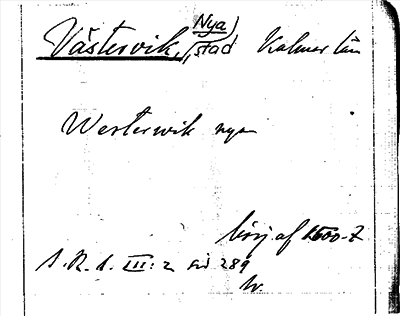 Västervik, (Nya stad) Kalmar län
Westerwik nya
börj. af 1500-t
S. R. A. III: 2 sid 289
W.